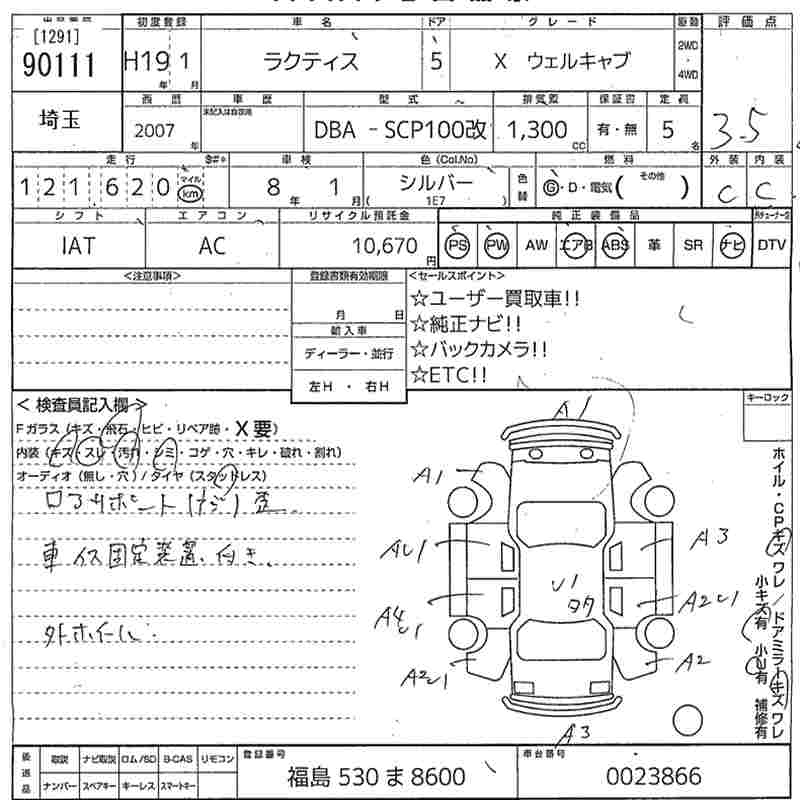 [1291]
90111
初度登録 車名 ドア グレード 駆動 評価点
H19 1 ラクティス 5 X ウェルキャブ 2WD・4WD
年 月
埼玉
西暦 車歴 型式 排気量 保証書 定員
未記入は自家用
2007年 DBA -SCP100改 1,300CC 有・無 5名 3.5
走行 車検 色(Cal.No) 燃料 外装 内装
121,620 マイル km 8年 1月 シルバー (1E7) 色替 G・D・電気( その他 ) C C
シフト エアコン リサイクル預託金 純正装備品
IAT AC 10,670円 PS PW AW エアB ABS 革 SR ナビ DTV
<注意事項> 登録書類有効期限 <セールスポイント>
☆ユーザー買取車!!
月 日 ☆純正ナビ!!
輸入車 ☆バックカメラ!!
ディーラー・並行 ☆ETC!!
左H・右H
キーロック
<検査員記入欄>
Fガラス(キズ・飛石・ヒビ・リペア跡・X要)
内装(キズ・スレ・汚れ・シミ・コゲ・穴・キレ・破れ・割れ)
オーディオ(無し・穴)/タイヤ(スタッドレス)
車イス固定装置、付き、
外ホイール
A1
A1
A3
A2
A3
U1
ホイル・CPキズ ワレ/ドアミラーキズ ワレ
小キズ有 小U有 補修有
後送品 取説 ナビ取説 ロム/SD B-CAS リモコン
ナンバー スペアキー キーレス スマートキー
登録番号 福島 530 ま 8600
車台番号 0023866